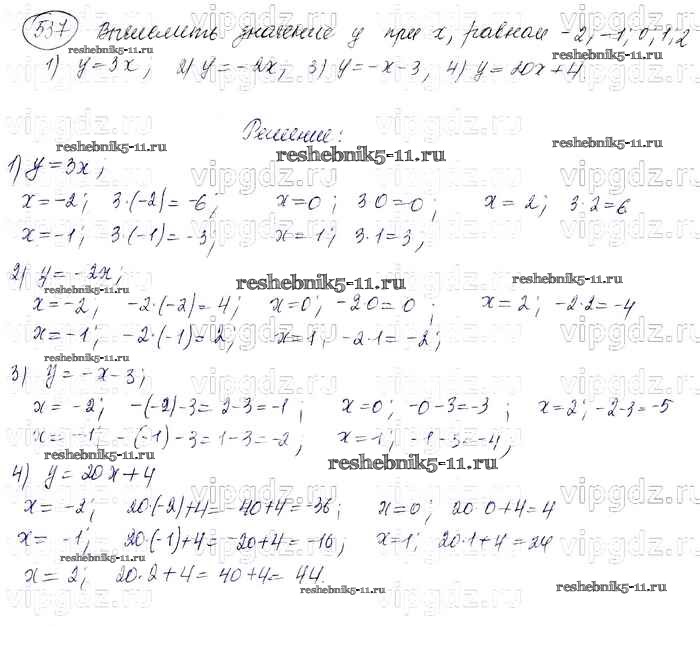 537 Вычислить значение y при x, равном -2; -1; 0; 1; 2
1) y=3x; 2) y=-2x; 3) y=-x-3, 4) y=20x+4
Решение:
1) y=3x;
x=-2; 3·(-2)=-6; x=0; 3·0=0; x=2; 3·2=6
x=-1; 3·(-1)=-3; x=1; 3·1=3;
2) y=-2x;
x=-2; -2·(-2)=4; x=0; -2·0=0; x=2; -2·2=-4
x=-1; -2·(-1)=2; x=1; -2·1=-2;
3) y=-x-3;
x=-2; -(-2)-3=2-3=-1; x=0; -0-3=-3; x=2; -2-3=-5
x=-1; -(-1)-3=1-3=-2, x=1; -1-3=-4,
4) y=20x+4
x=-2; 20·(-2)+4=-40+4=-36; x=0; 20·0+4=4
x=-1; 20·(-1)+4=-20+4=-16, x=1; 20·1+4=24
x=2; 20·2+4=40+4=44.
vipgdz.ru
reshebnik5-11.ru